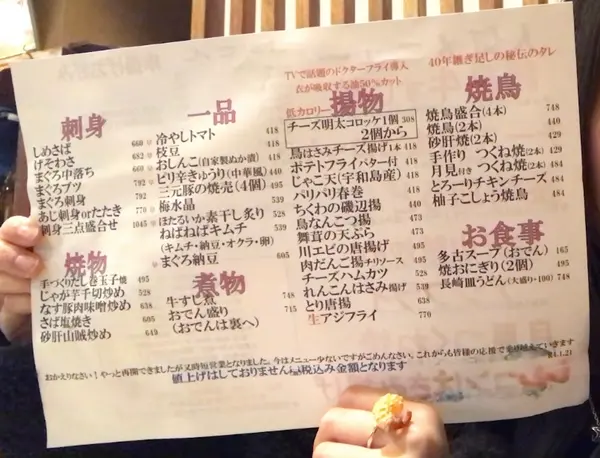 刺身
しめさば 660
げそわさ 682
まぐろ中落ち
まぐろブツ 792
まぐろ刺身 792
あじ刺身orたたき 770
刺身三点盛合せ 1045
焼物
手づくりだし巻玉子焼 495
じゃが芋千切炒め 528
なす豚肉味噌炒め 638
さば塩焼き 605
砂肝山賊炒め 649
一品
冷やしトマト 418
枝豆 418
おしんこ(自家製ぬか漬) 418
ピリ辛きゅうり(中華風) 440
三元豚の焼売(4個) 495
梅水晶 539
ほたるいか素干し炙り 528
ねばねばキムチ 539
(キムチ・納豆・オクラ・卵)
まぐろ納豆 605
煮物
牛すじ煮 748
おでん盛り 715
(おでんは裏へ)
TVで話題のドクターフライ導入
衣が吸収する油50%カット
低カロリー
揚物
チーズ明太コロッケ1個 308
2個から
鳥はさみチーズ揚げ1本 418
ポテトフライバター付 418
じゃこ天(宇和島産) 418
パリパリ春巻 418
ちくわの磯辺揚 440
鳥なんこつ揚 473
舞茸の天ぷら 473
川エビの唐揚げ 495
肉だんご揚チリソース 495
チーズハムカツ 528
れんこんはさみ揚げ 539
とり唐揚 638
生アジフライ 770
40年継ぎ足しの秘伝のタレ
焼鳥
焼鳥盛合(4本) 748
焼鳥(2本) 429
砂肝焼(2本) 429
手作り つくね焼(2本) 429
月見付き つくね焼(2本) 484
とろーりチキンチーズ 484
柚子こしょう焼鳥 484
お食事
多古スープ(おでん) 165
焼おにぎり(2個) 495
長崎皿うどん(大盛り+100) 748
おかえりなさい!やっと再開できましたが又時短営業となりました。今はメニュー少ないですがごめんなさい。これからも皆様の応援で乗り越えていきます
値上げはしておりません 税込み金額となります